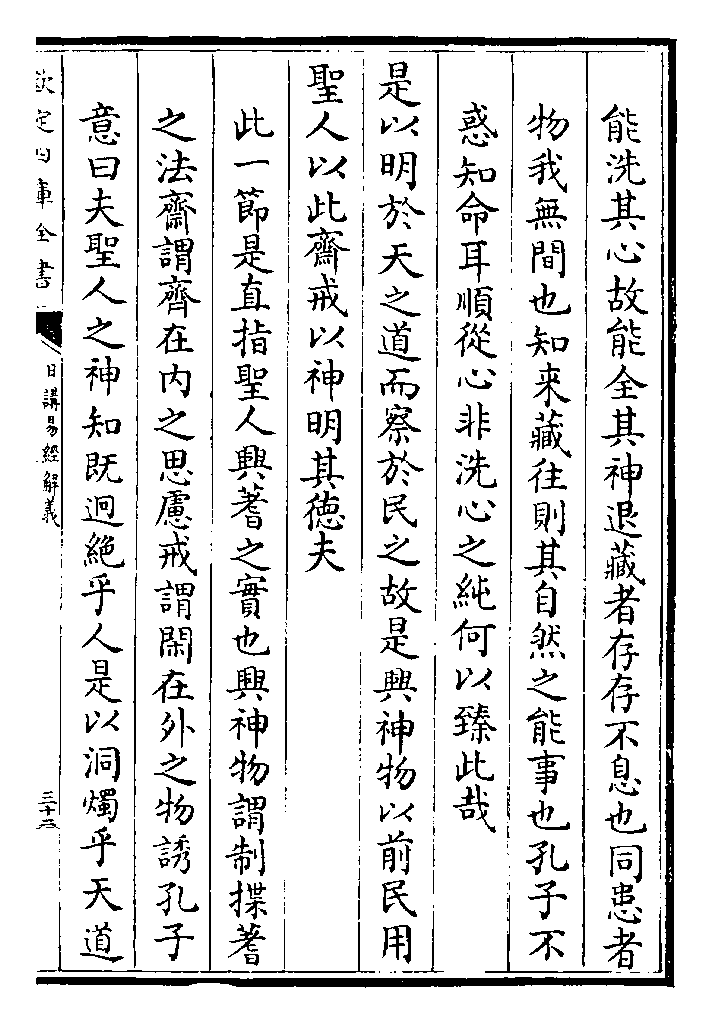 能洗其心故能全其神退藏者存存不息也同患者
物我無間也知来藏往則其自然之能事也孔子不
惑知命耳順從心非洗心之純何以臻此哉
是以明於天之道而察於民之故是興神物以前民用
聖人以此齋戒以神明其徳夫
此一節是直指聖人興蓍之實也興神物謂制揲蓍
之法齋謂齊在内之思慮戒謂閑在外之物誘孔子
意曰夫聖人之神知既迥絶乎人是以洞燭乎天道
欽定四庫全書
日講易經解義
三十二